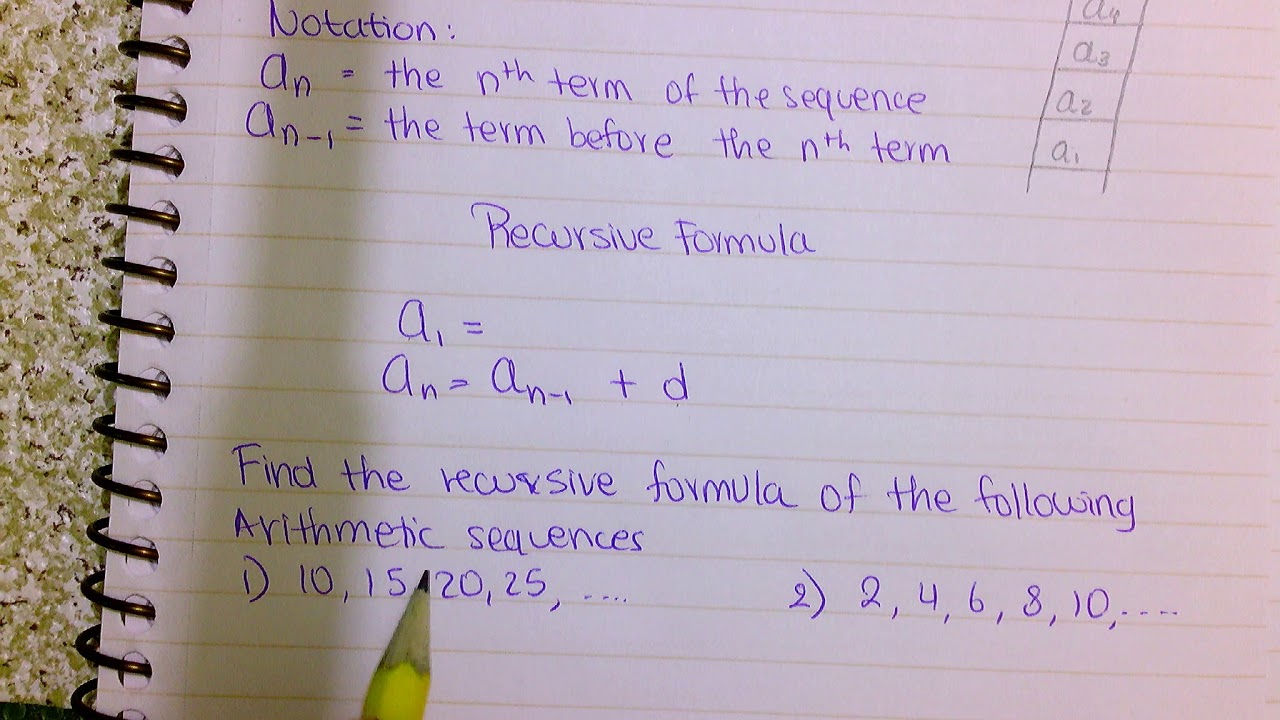 Notation:
aₙ = the nᵗʰ term of the sequence
aₙ₋₁ = the term before the nᵗʰ term
a₄
a₃
a₂
a₁
Recursive Formula
a₁ =
aₙ = aₙ₋₁ + d
Find the recursive formula of the following
Arithmetic sequences
1) 10, 15, 20, 25, ....
2) 2, 4, 6, 8, 10, ....